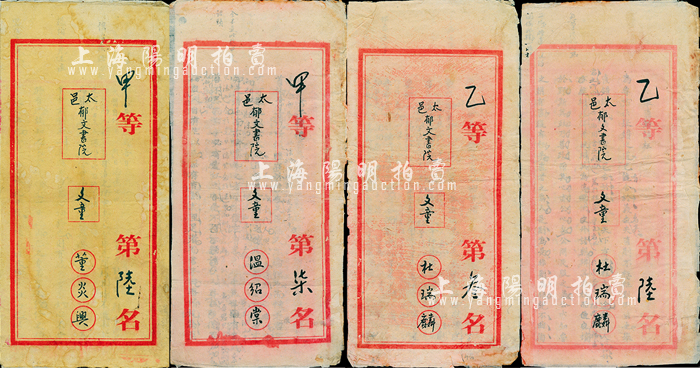 甲等第陸名
太邑郁文書院
文童
董炎興
甲等第柒名
太邑郁文書院
文童
溫紹棠
乙等第叁名
太邑郁文書院
文童
杜瑞麟
乙等第陸名
太邑郁文書院
文童
杜瑞麟
上海陽明拍賣
www.yangmingauction.com
上海陽明拍賣
www.yangmingauction.com
上海陽明拍賣
www.yangmingauction.com